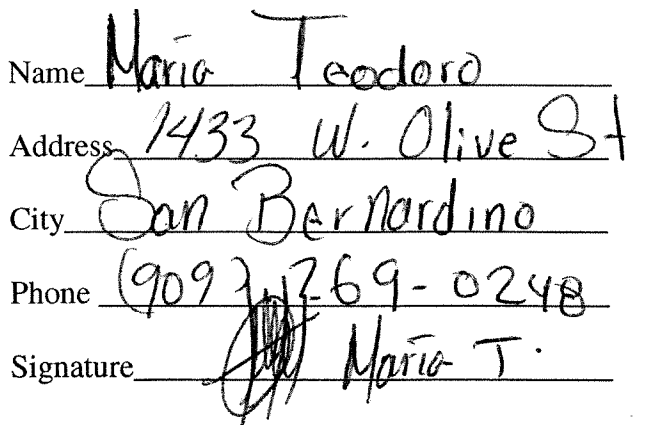 Name Maria Teodoro
Address 1433 W. Olive St
City San Bernardino
Phone (909) 269-0248
Signature Maria T.